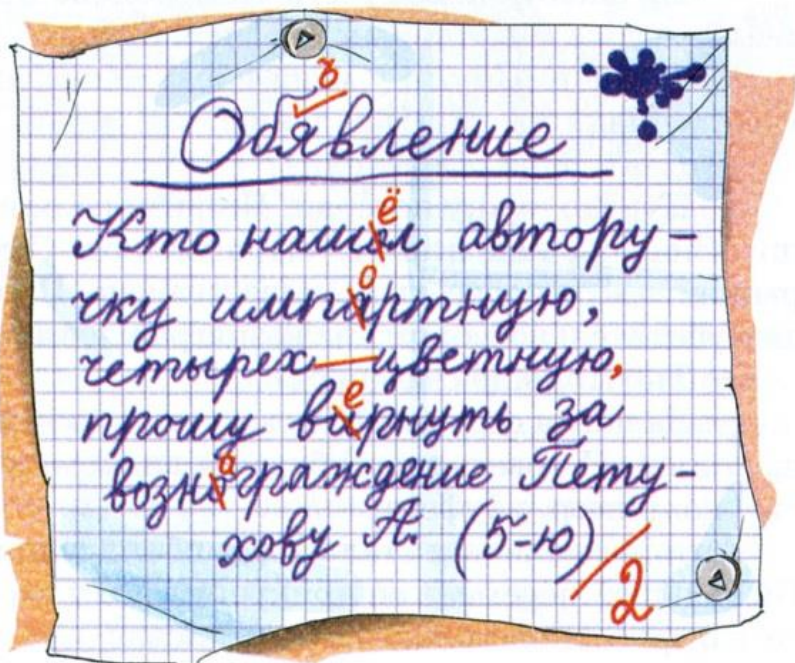 Обявление
Кто нашол автору-
чку импартную,
четырех—цветную,
прошу вирнуть за
вознограждение Пету-
хову А. (5-ю) /2